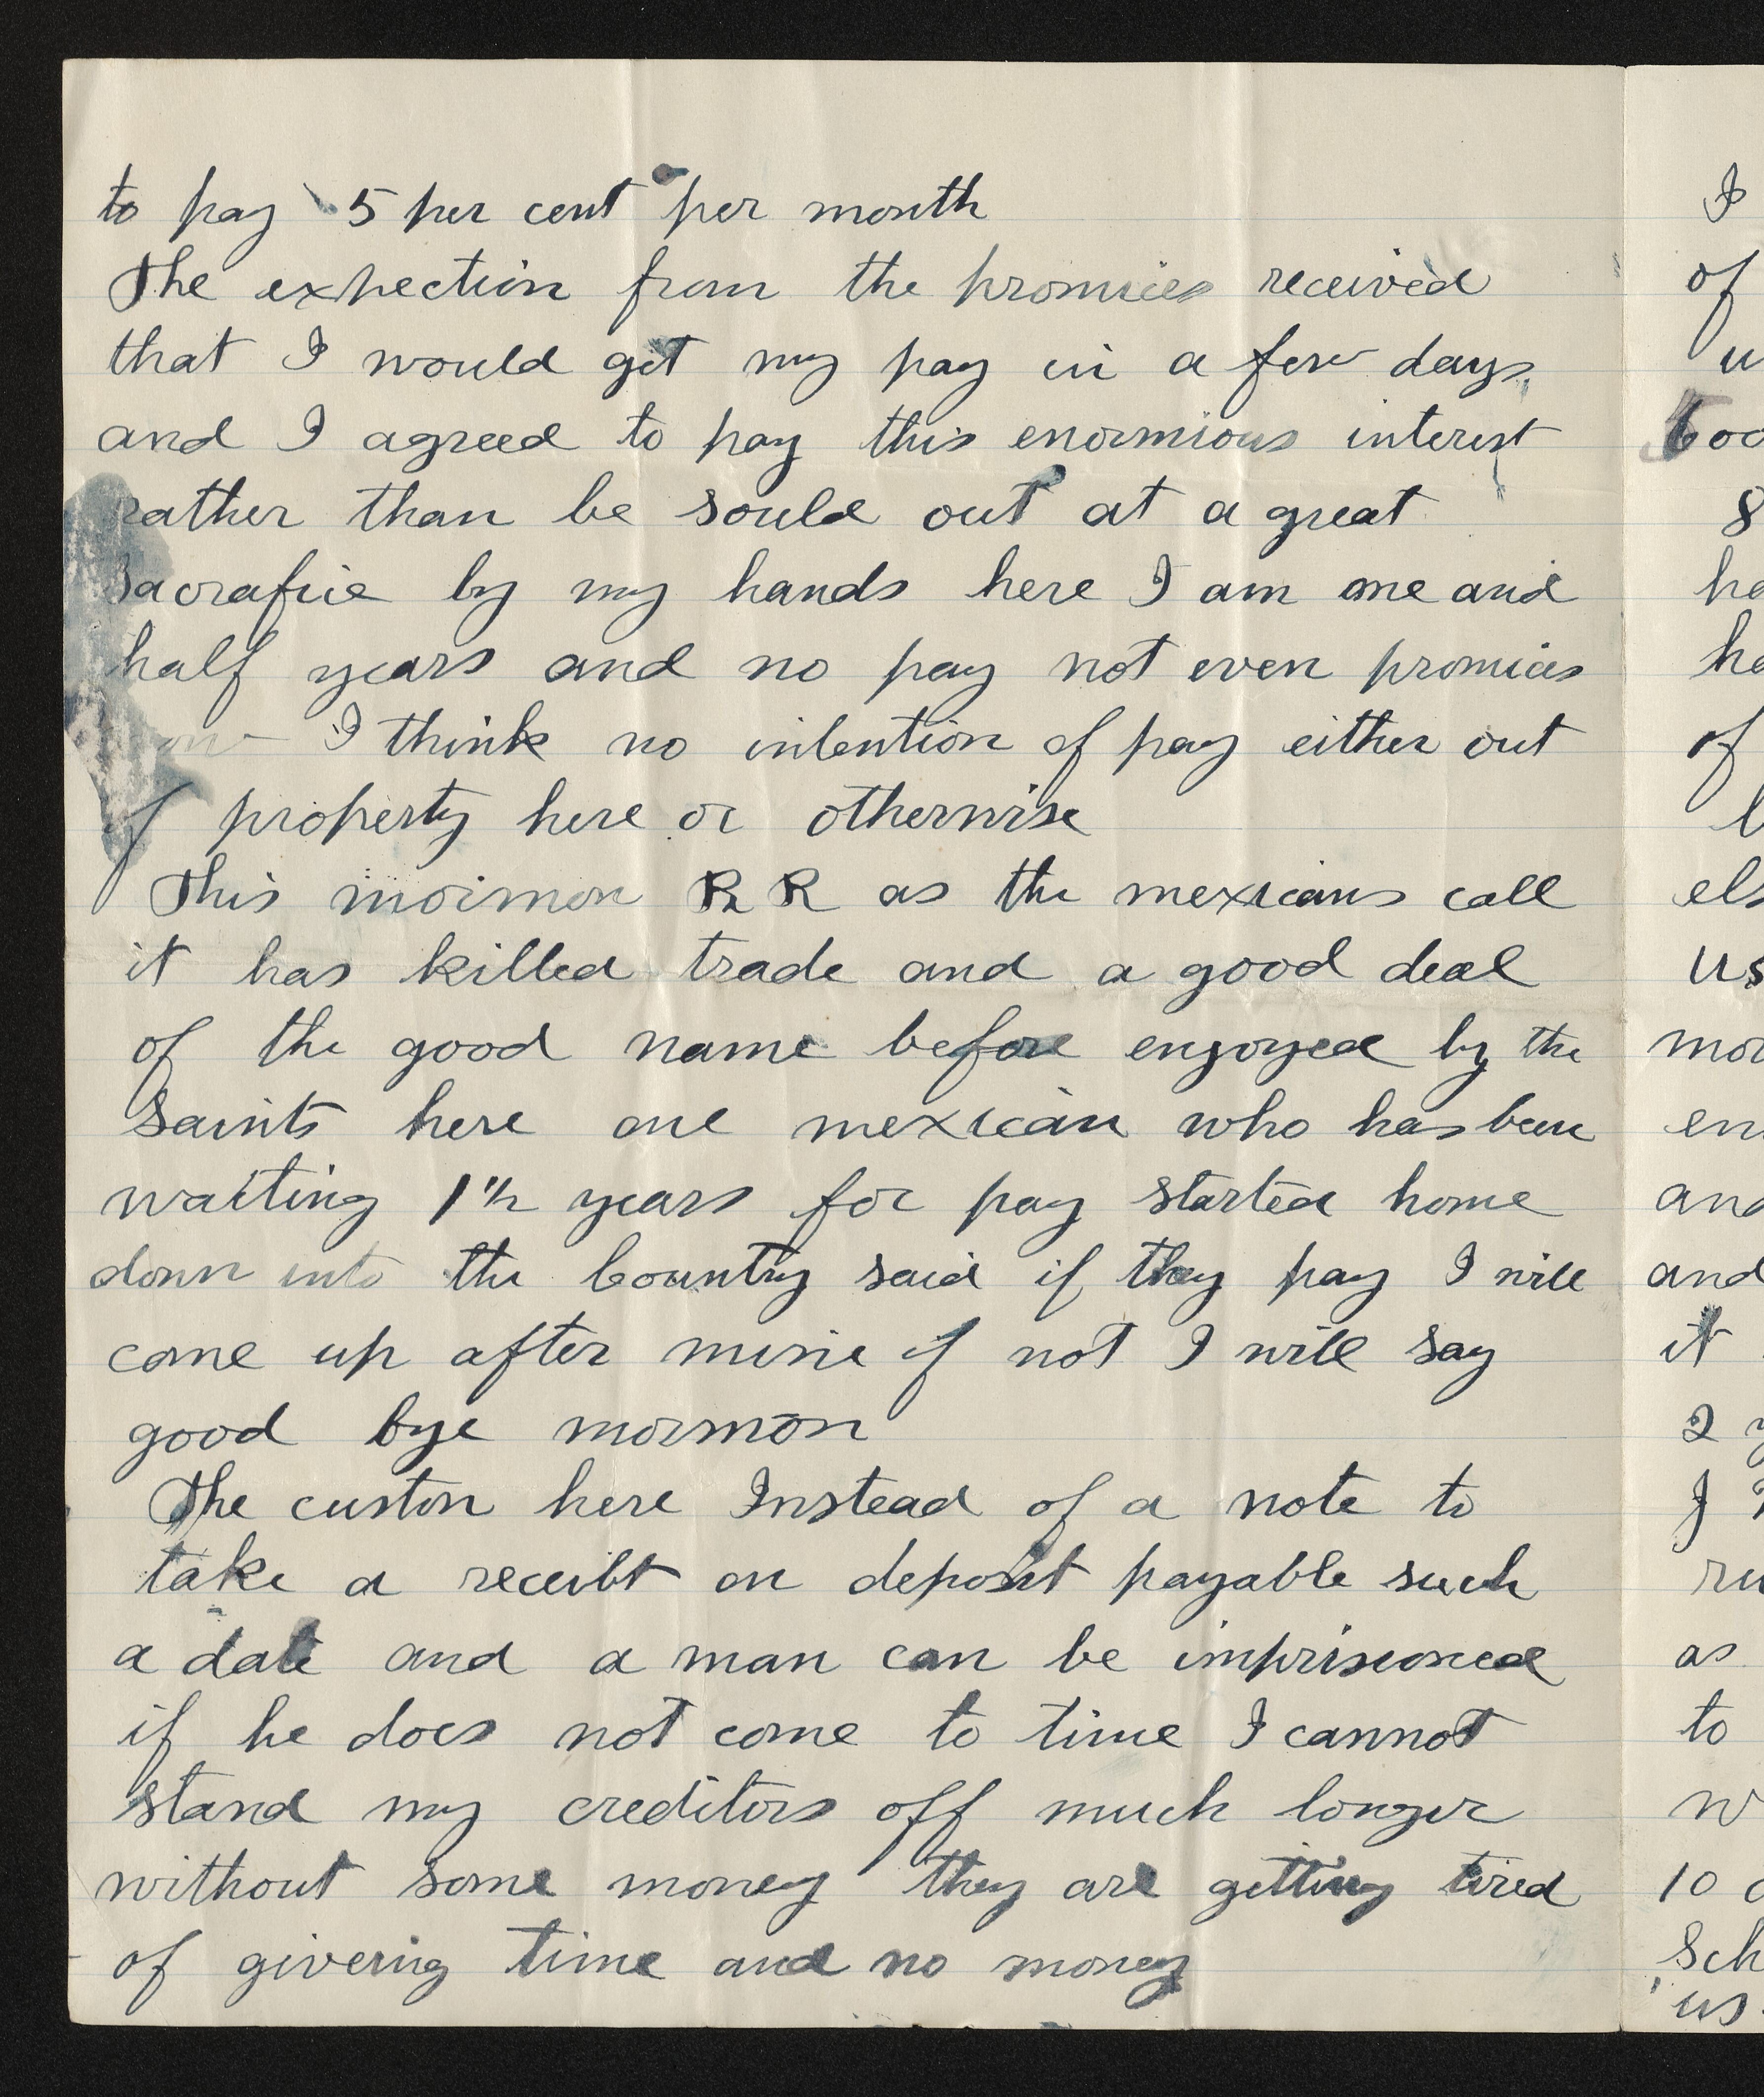 to pay 5 per cent per month
The expection from the promices received
that I would get my pay in a few days,
and I agreed to pay this enormious interest
rather than be sould out at a great
Sacrafice by my hands here I am one and
half years and no pay not even promices
now I think no intention of pay either out
of property here or otherwise
This mormon RR as the mexicans call
it has killed trade and a good deal
of the good name before enjoyed by the
Saints here one mexican who has been
waiting 1 1/2 years for pay started home
down into the Country said if they pay I will
come up after mine if not I will say
good bye mormon
The custon here Instead of a note to
take a receibt on deposit payable such
a date and a man can be imprisoned
if he does not come to time I cannot
stand my creditors off much longer
without some money they are getting tired
of givering time and no money
I
of
8
of
us
and
and
it
2
as
to
10
us